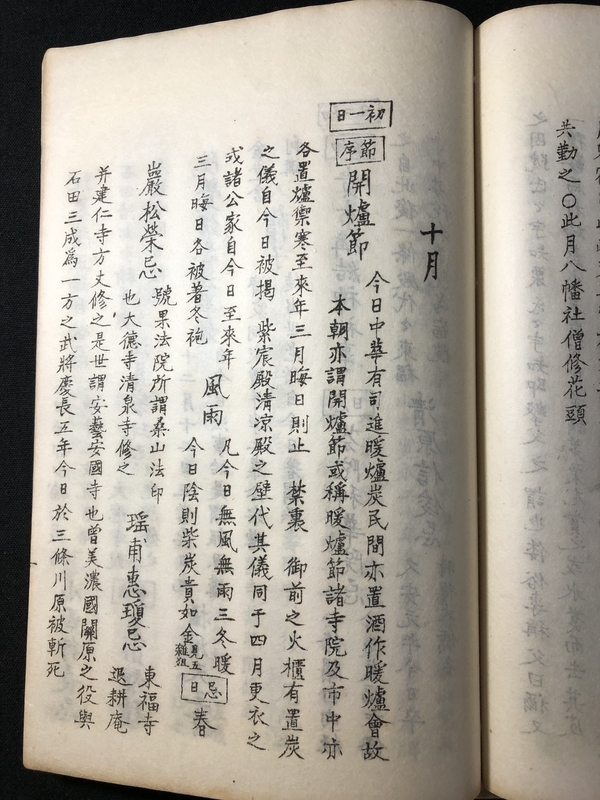 共勤之〇此月八幡社僧修花頭
十月
初一日
節序 開爐節 今日中華有司進暖爐炭民間亦置酒作暖爐會故
本朝亦謂開爐節或稱暖爐節諸寺院及市中亦
各置爐禦寒至來年三月晦日則止 禁裏 御前之火櫃有置炭
之儀自今日被揭 紫宸殿清凉殿之壁代其儀同于四月更衣之
或諸公家自今日至來年
三月晦日各被著冬袍
風雨
凡今日無風無雨三冬暖
今日陰則柴炭貴如金見五雜俎
忌日 春
巖松榮忌
號果法院所謂桑山法印
也大德寺清泉寺修之
瑶甫惠瓊忌
東福寺
退耕庵
并建仁寺方丈修之是世謂安藝安國寺也曾美濃國關原之役與
石田三成爲一方之武將慶長五年今日於三條川原被斬死